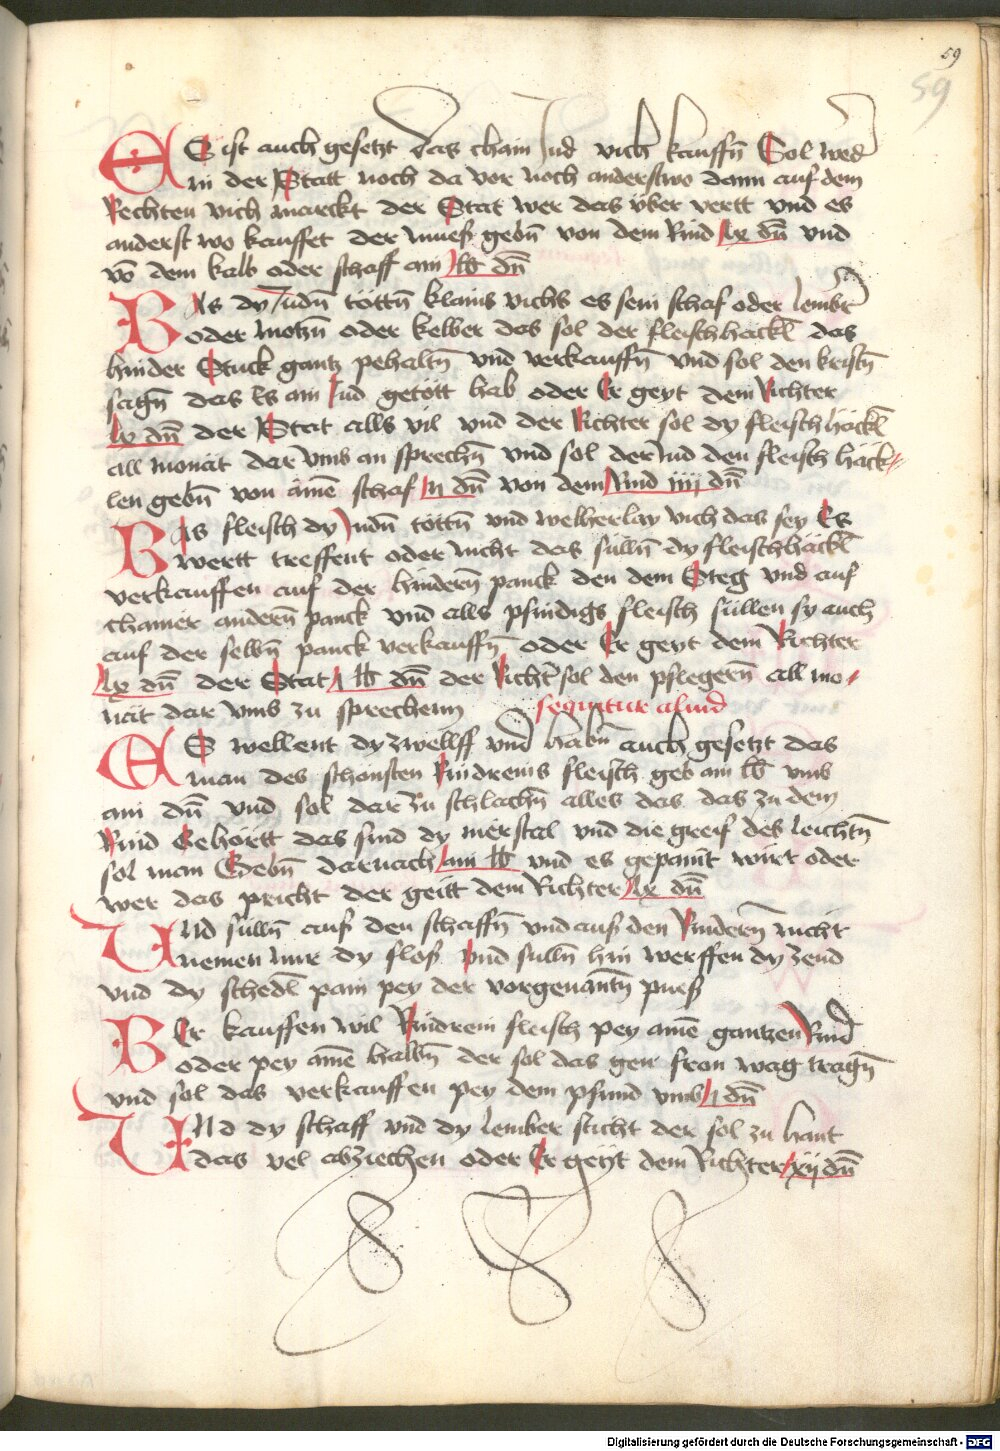 59
59
ES ist auch gesetzt das chain Jud vich kauffn̄ Sol wed
in der Statt noch da vor noch anderstwo dann auf dem
Rechten vich marckt der Stat wer das über vertt vnd es
anderst wo kauffet der mueß gebn̄ von dem Rind lx dn̄ vnd
vō dem kalb oder schaff ain lb dn̄
Was dy Judn̄ töttn̄ klains vichs es sein schaf oder lember
oder motzn̄ oder kelber das sol der fleischhackl̄ das
hinder Stuck gantz pehaltn̄ vnd verkauffn̄ vnd sol den kristn̄
sagn̄ das Es ain Jud getött hab oder Er geyt dem Richter
lx dn̄ der Stat alls vil vnd der Richter sol dy fleischhäckl̄
all monät dar vmb an sprechn̄ vnd sol der Jud den fleisch häck
len gebn̄ von ainē schaf ij dn̄ von dem Rind iiij dn̄
Was fleisch dy Judn̄ töttn̄ vnd welherlay vich das sey Es
wertt treffent oder nicht das sülln̄ dy fleischhäckl̄
verkauffen auf der hindern̄ panck den dem Steg vnd auf
chainer andern̄ panck vnd alls pfindigs fleisch süllen sy auch
auf der selbn̄ panck verkauffn̄ oder Er geyt dem Richter
lx dn̄ der Stat j lb dn̄ der Richtr̄ sol den pflegern̄ all mo
nät dar vmb zu sprechenn sequitur aliud
ES wellent dy zwellff vnd habn̄ auch gesetzt das
man des schönsten Rindreins fleisch geb ain lb vmb
ain dn̄ vnd sol dar zu schlachn̄ alles das das zu dem
Rind Gehörtt das sind dy mèrstal vnd die greif des leichtn̄
sol man Gebn̄ darnach ain lb vnd es gepannt würt oder
wer das pricht der geitt dem Richter lx dn̄
Vnd sülln̄ auß den schaffn̄ vnd auß den Rindern̄ nicht
nemen nur dy floß vnd sulln̄ hin werffen dy zend
vnd dy schedl̄ pain pey der vorgenantn̄ pueß
Wer kauffen wil Rindrein fleisch pey ainē gantzen Rind
oder pey ainē halbn̄ der sol das gen fron wag tragn̄
vnd sol das verkauffen pey dem pfund vmb j dn̄
Vnd dy schaff vnd dy lember sticht der sol zu hant
das vel abziechen oder Er geyt dem Richter xij dn̄
Digitalisierung gefördert durch die Deutsche Forschungsgemeinschaft - DFG